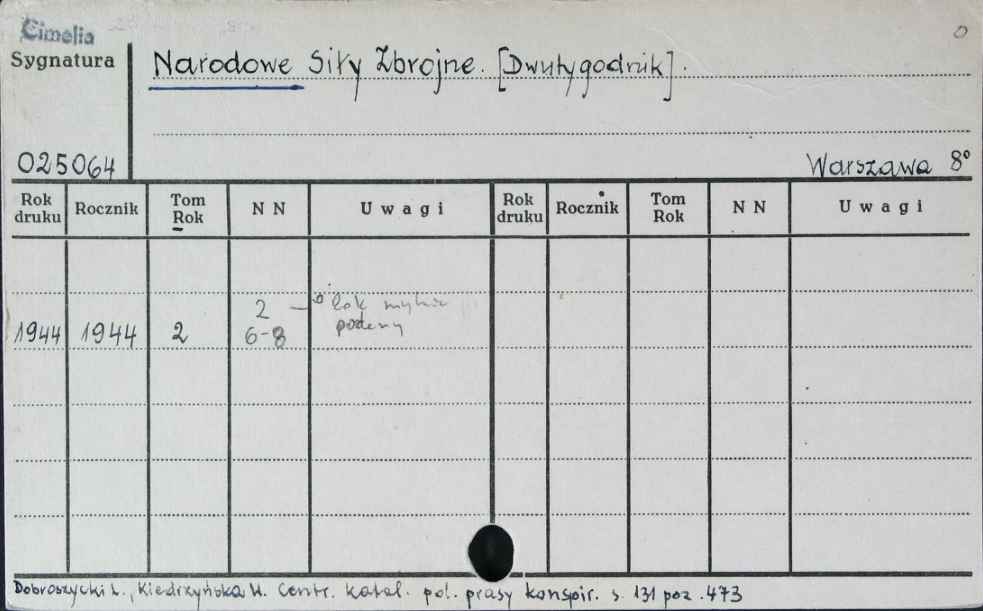 Cimelia
Sygnatura
Narodowe Siły Zbrojne. [Dwutygodnik].
025064
Warszawa 8°
Rok druku Rocznik Tom Rok N N Uwagi Rok druku Rocznik Tom Rok N N Uwagi
2 – rok mylnie
1944 1944 2 6-8 podany
Dobroszycki L., Kiedrzyńska W. Centr. katal. pol. prasy konspir. s. 131 poz. 473